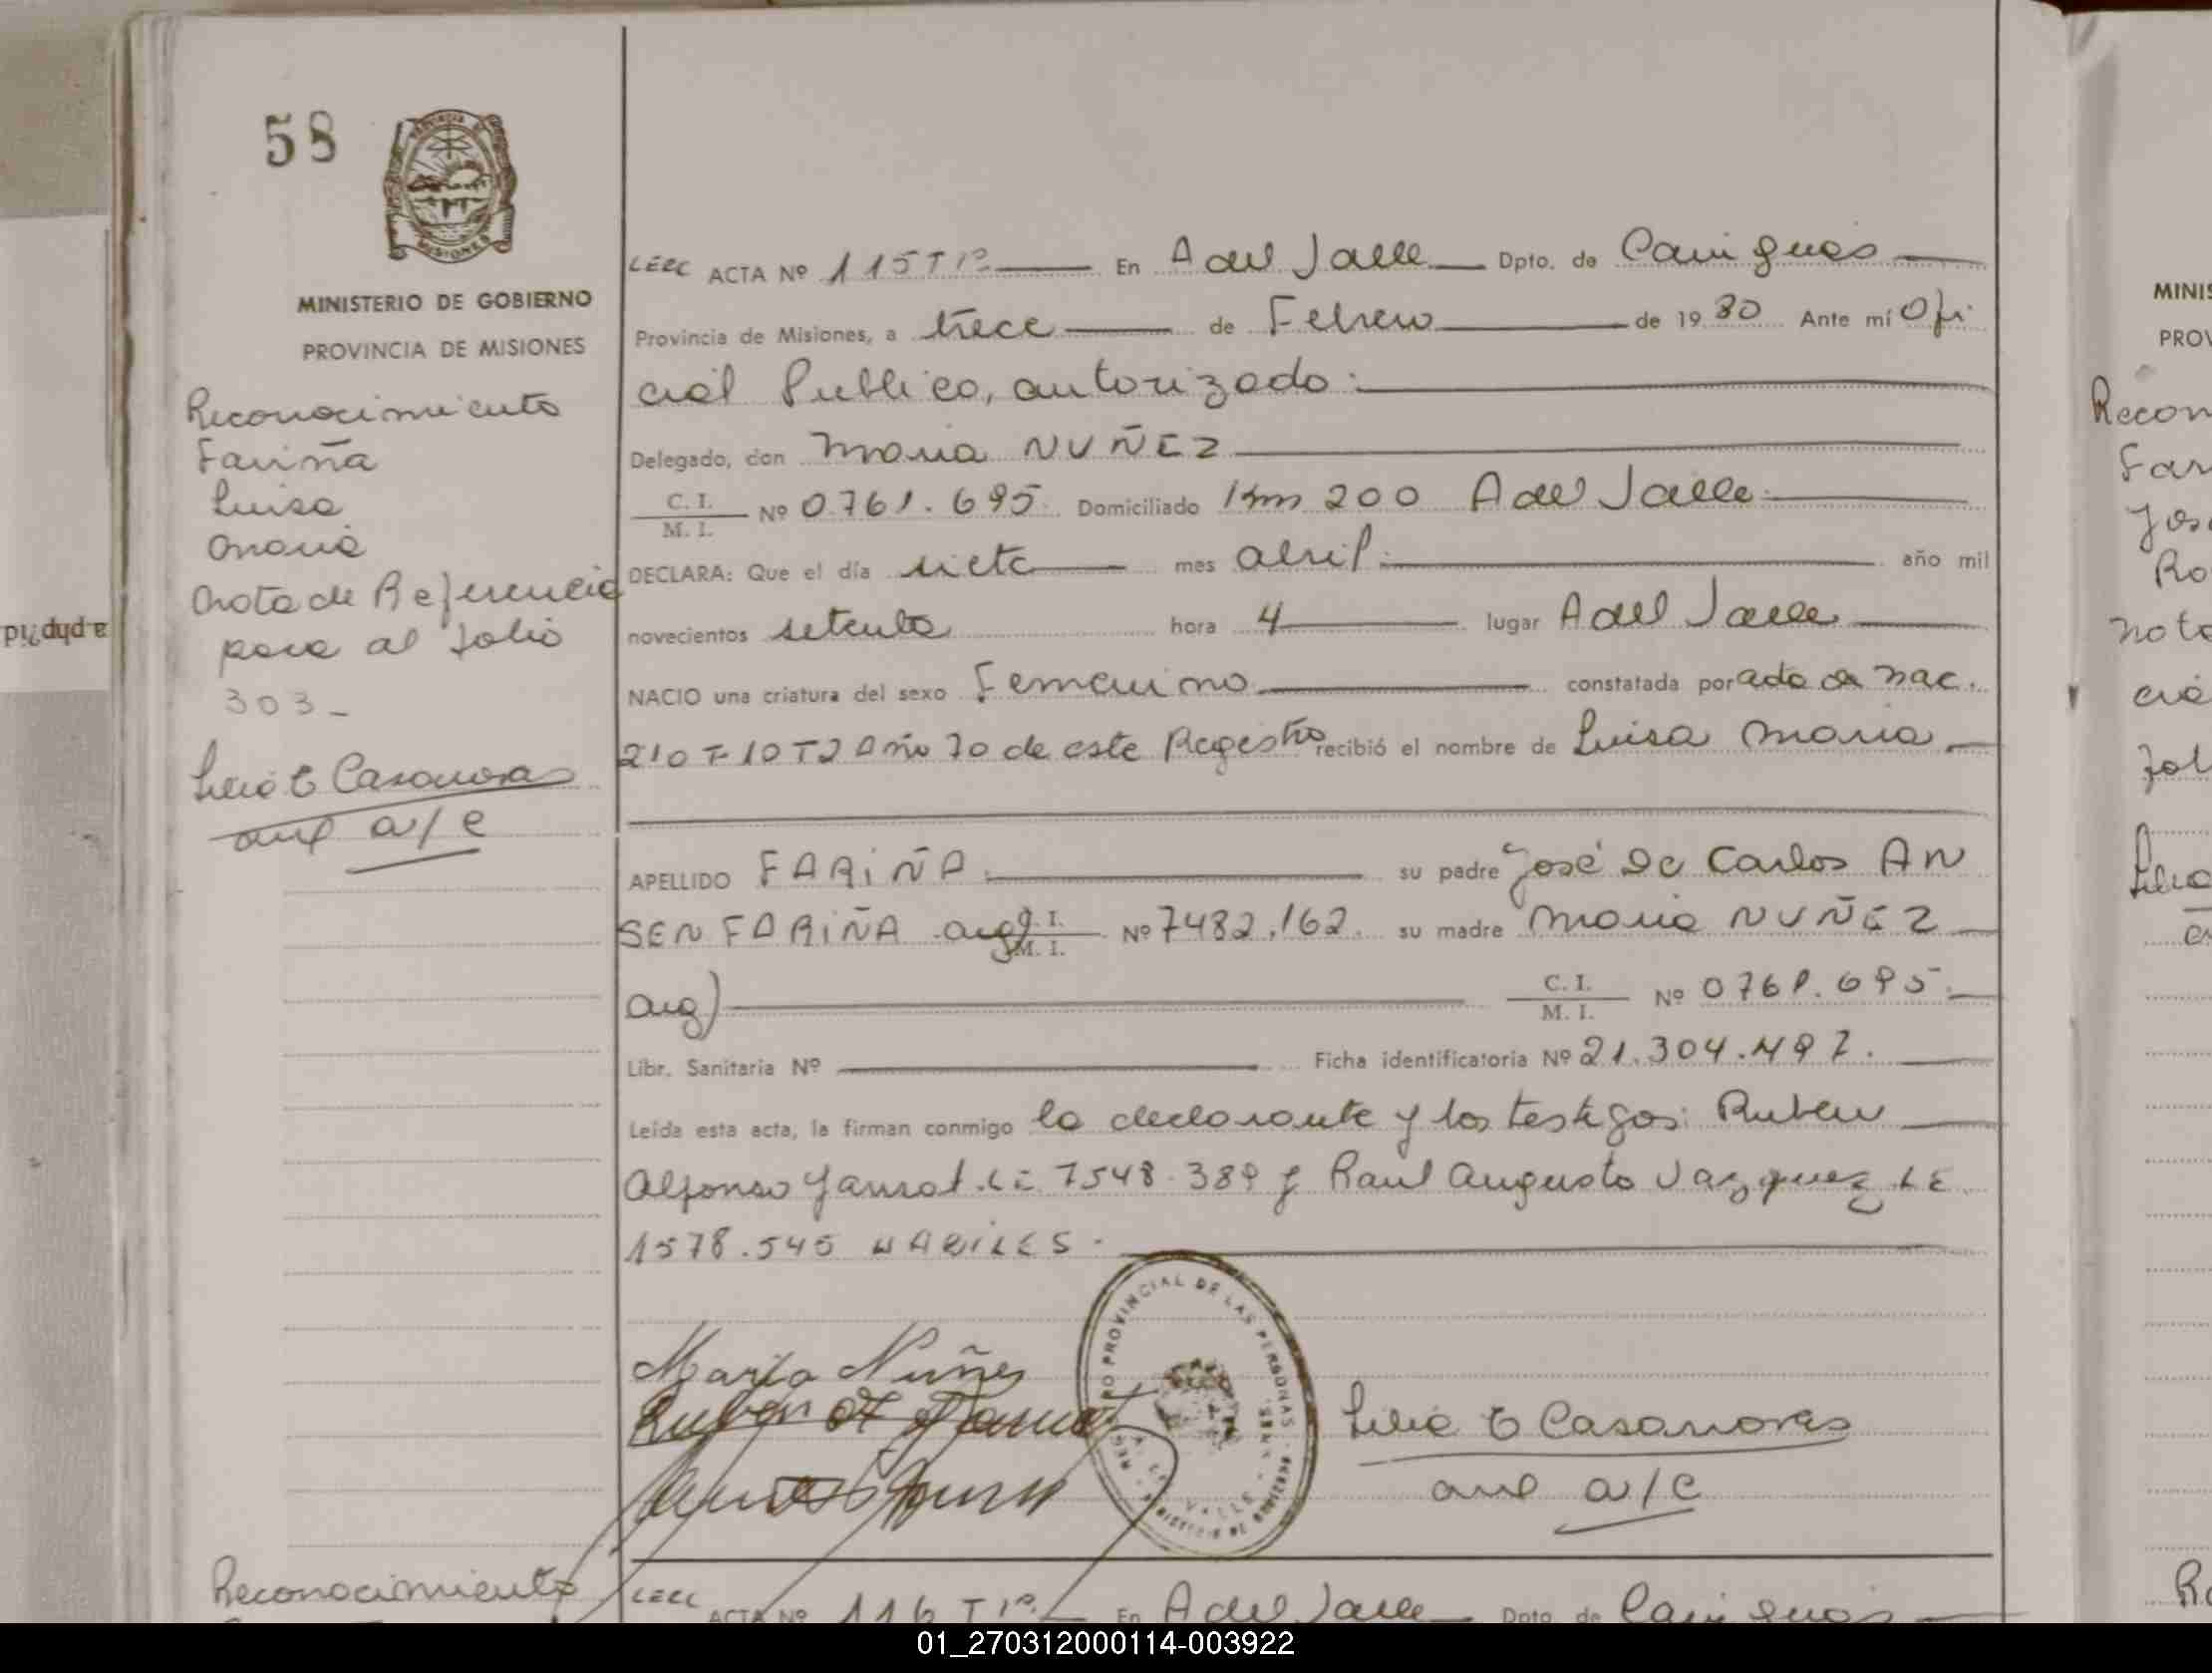 58
MINISTERIO DE GOBIERNO
PROVINCIA DE MISIONES
Reconocimiento
Fariña
Luisa
Maria
Nota de Referencia
para al folio
303-
Lilia E Casanovas
aux a/c
ACTA Nº 115 Tº En A del Valle Dpto. de Cainguas
Provincia de Misiones, a trece de Febrero de 1980 Ante mí Ofi
cial Publico, autorizado:
Delegado, don Maria NUÑEZ
C. I.
M. I. Nº 0761.695 Domiciliado Km 200 A del Valle
DECLARA: Que el día siete mes abril: año mil
novecientos setenta hora 4 lugar A del Valle
NACIO una criatura del sexo Femenino constatada por acta de nac.
210 F 10 T2 Año 70 de este Registro recibió el nombre de Luisa Maria
APELLIDO FARIÑA su padre José De Carlos AN
SEN FARIÑA arg) C. I.
M. I. Nº 7482.162 su madre Maria NUÑEZ
arg) C. I.
M. I. Nº 0761.695
Libr. Sanitaria Nº Ficha identificatoria Nº 21.304.497.
Leída esta acta, la firman conmigo la declarante y los testigos: Ruben
Alfonso LE 7548.389 y Raul Augusto Vazquez LE
1578.545 HABILES.
Maria Nuñes
Ruben
PROVINCIAL DE LAS PERSONAS
VALLE
Lilia E Casanovas
aux a/c
Reconocimiento
ACTA Nº 116 Tº En A del Valle Dpto. de Cainguas
MINIS
PROV
Recon
Far
Jos
Ro
Nota
01_270312000114-003922